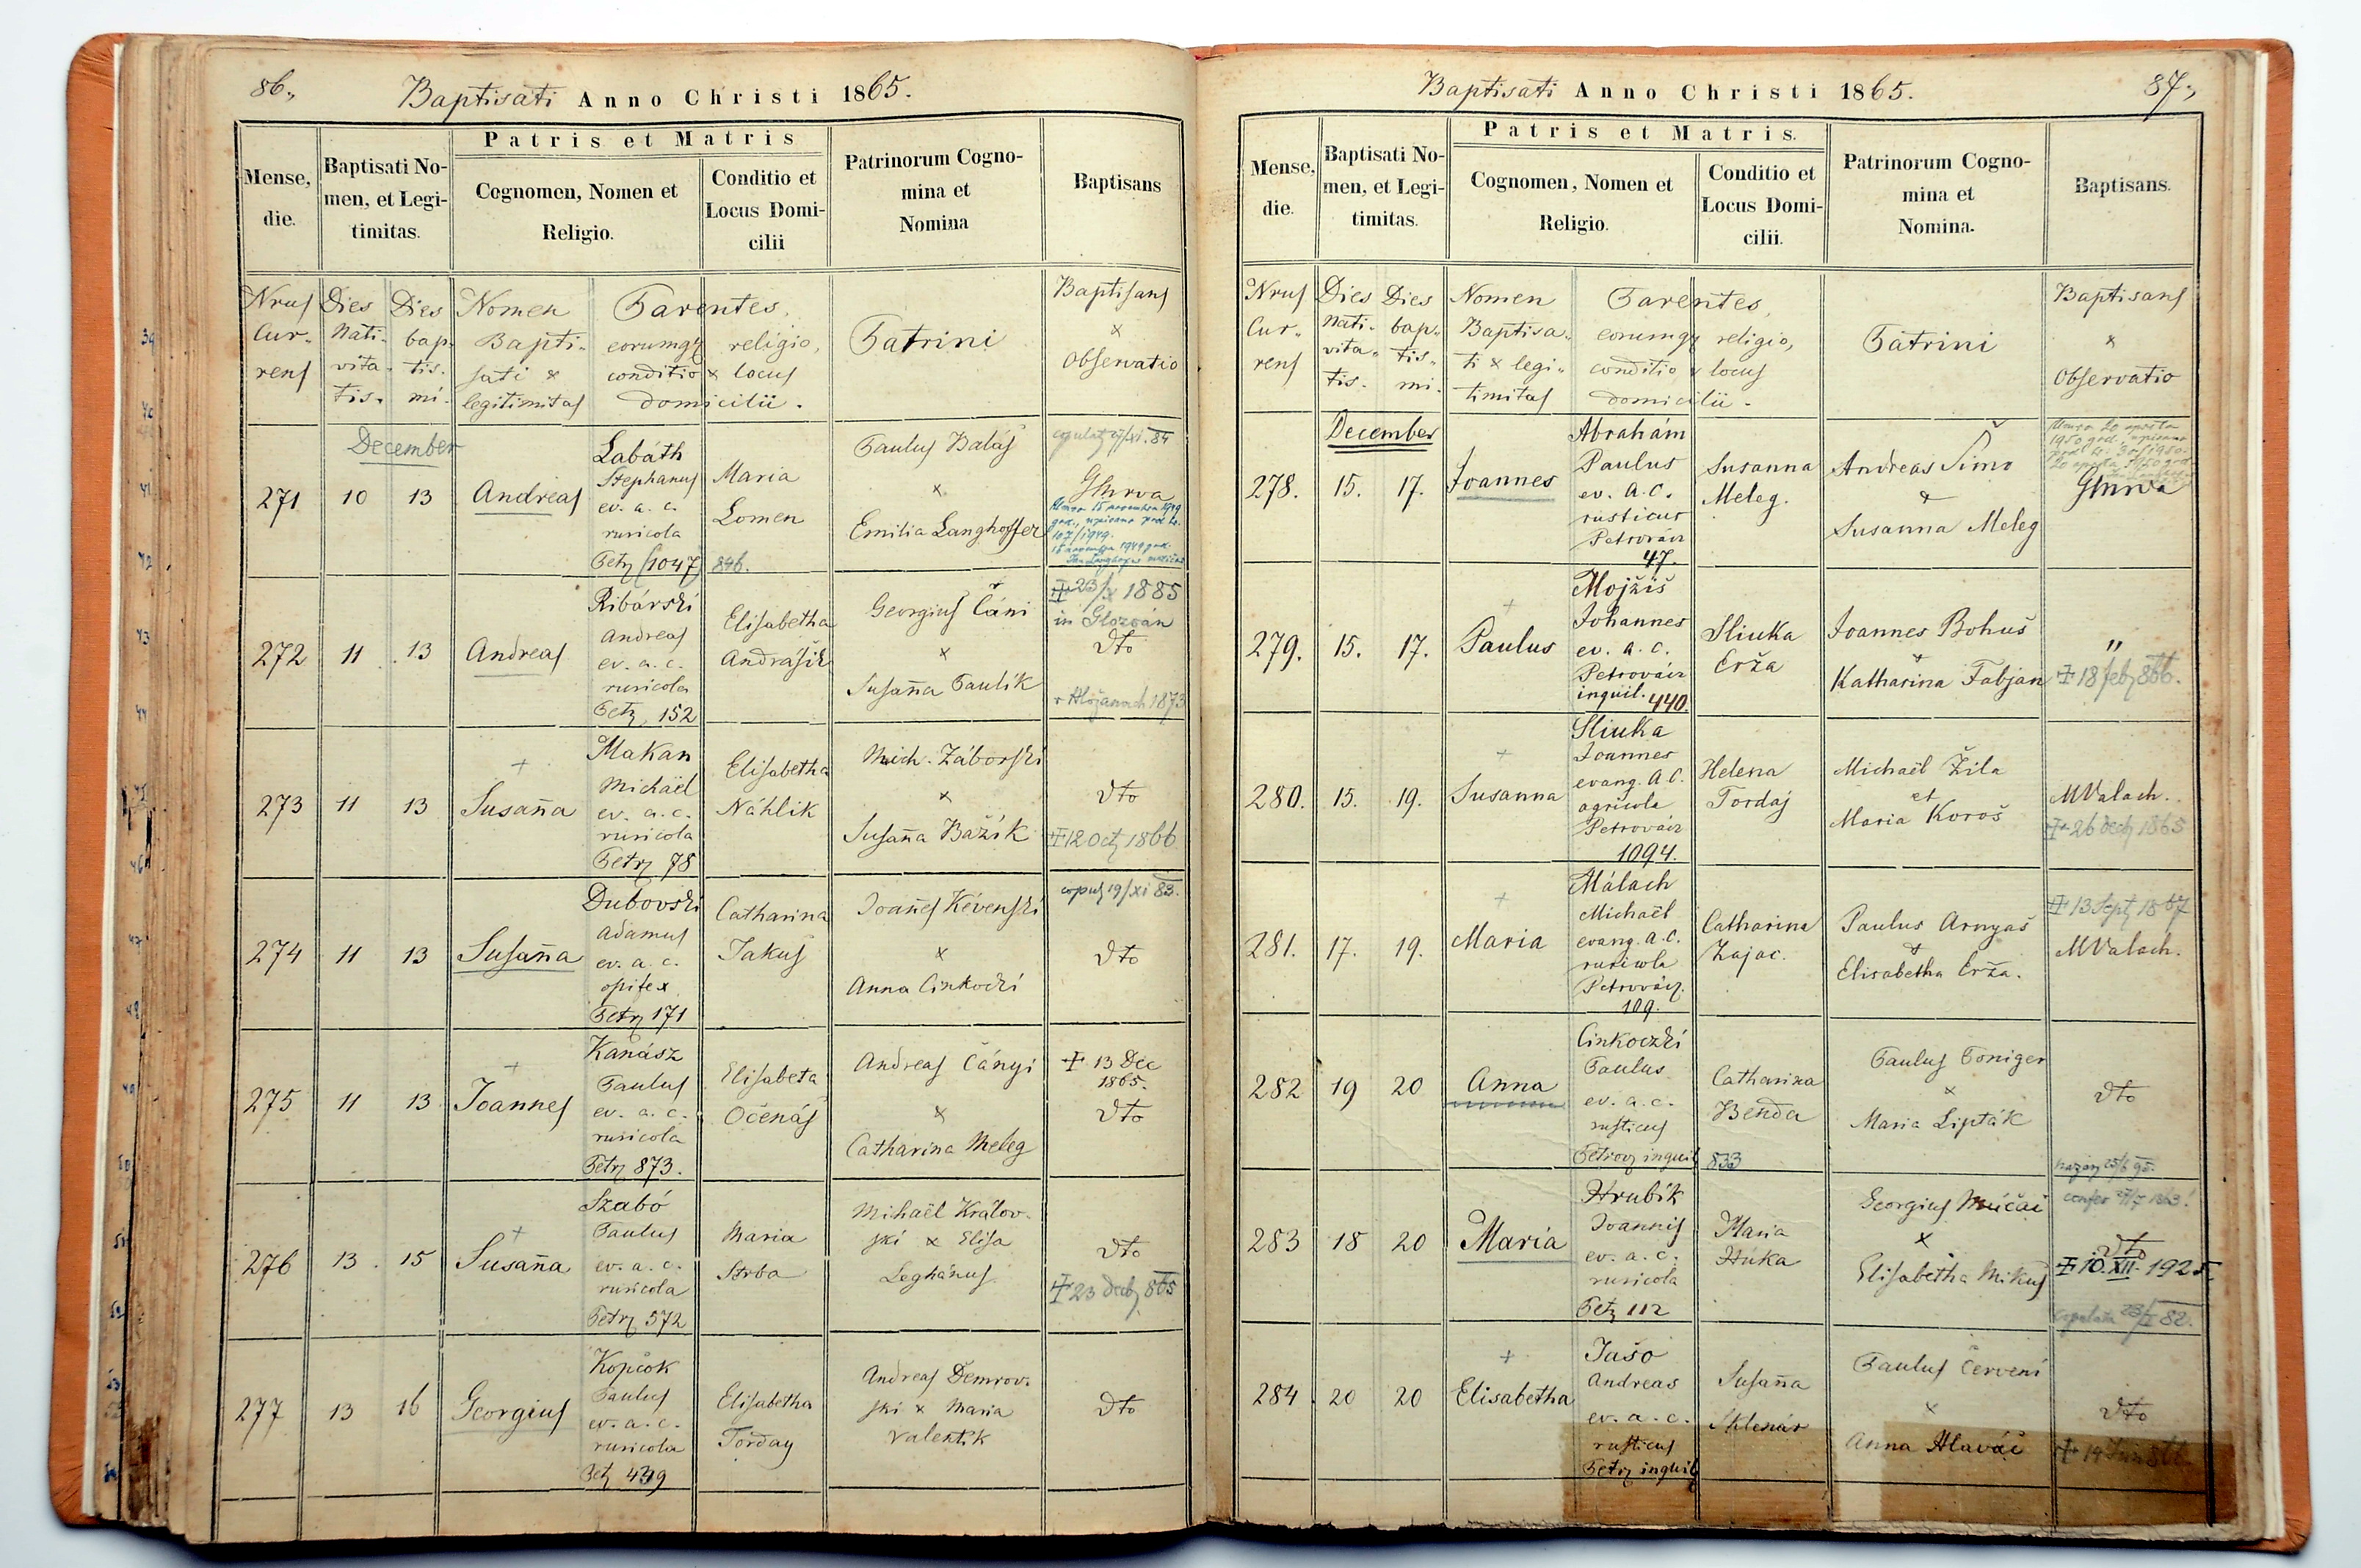 86.,
Baptisati Anno Christi 1865.
Mense, die.
Baptisati Nomen, et Legitimitas.
Patris et Matris
Cognomen, Nomen et Religio.
Conditio et Locus Domicilii
Patrinorum Cognomina et Nomina
Baptisans
Nrus Currens
Dies Nativitatis.
Dies baptismi.
Nomen Baptisati x legitimitas
Parentes, eorumq religio, conditio x locus domicilii.
Patrini
Baptisans x Observatio
December
271 10 13 Andreas
Labáth
Stephanus
ev. a. c.
ruricola
Petrz (1047) 846.
Maria
Lomen
Paulus Balás
x
Emilia Langhoffer
Ghrva
107/1949.
272 11 13 Andreas
Ribárski
Andreas
ev. a. c.
ruricola
Petrz 152
Elisabetha
Andrásik
Georgius Čáni
x
Susaña Paulik
23/x 1885
in Glozván
dto
273 11 13 Susaña
Makan
Michaël
ev. a. c.
ruricola
Petrz 78
Elisabetha
Náhlik
Mich. Záborski
x
Susaña Bažík
dto
12 Oct 1866
274 11 13 Susaña
Dubovski
Adamus
ev. a. c.
opifex
Petrz 171
Catharina
Jakus
Joañes Kévenski
x
Anna Cinkocki
copul 19/xi 83.
dto
275 11 13 Joannes
Kanász
Paulus
ev. a. c.
ruricola
Petrz 873.
Elisabeta
Očenás
Andreas Čányi
x
Catharina Meleg
13 Dec
1865.
dto
276 13. 15 Susaña
Szabó
Paulus
ev. a. c.
ruricola
Petrz 572
Maria
Strba
Mihaël Králov-
ski x Elisa
Leghánus
dto
23 decb 865
277 13 16 Georgius
Kopčok
Paulus
ev. a. c.
ruricola
Petz 439
Elisabetha
Torday
Andreas Demrov-
ski x Maria
Valentik
dto
Baptisati Anno Christi 1865.
87.,
Mense, die.
Baptisati Nomen, et Legitimitas.
Patris et Matris.
Cognomen, Nomen et Religio.
Conditio et Locus Domicilii.
Patrinorum Cognomina et Nomina.
Baptisans.
Nrus Currens
Dies Nativitatis.
Dies baptismi.
Nomen Baptisati x legitimitas
Parentes, eorumq religio, conditio x locus domicilii.
Patrini
Baptisans x Observatio
December
278. 15. 17. Joannes
Abrahám
Paulus
ev. A.C.
rusticus
Petrovácz
47.
Susanna
Meleg.
Andreas Šimo
&
Susanna Meleg
Ghrva
279. 15. 17. Paulus
Mojžiš
Johannes
ev. a. c.
Petrovácz
inquil. 440.
Sliuka
Erža
Joannes Bohuš
&
Katharina Fabjan
"
18 feb 866.
280. 15. 19. Susanna
Sliuka
Joannes
evang. A.C.
agricola
Petrovácz
1094.
Helena
Tordaj
Michaël Žila
et
Maria Koroš
MValach.
26 decb 1865
281. 17. 19. Maria
Málach
Michaël
evang. a.c.
ruricola
Petrovácz.
109.
Catharina
Zajac.
Paulus Arnyaš
&
Elisabetha Erža.
13 Sept 1867
MValach.
282 19 20 Anna
Cinkoczki
Paulus
ev. a. c.
rusticus
Petrovz inquil 833
Catharina
Benda
Paulus Poniger
x
Maria Lipták
dto
283 18 20 Maria
Hrubík
Joannis
ev. a. c.
ruricola
Petz 112
Maria
Húka
Georgius Múčai
x
Elisabetha Mikus
dto
10. XII. 1925.
284. 20 20 Elisabetha
Jašo
Andreas
ev. a. c.
rusticus
Petrz inquil
Susaña
Sklenár
Paulus Červeni
x
Anna Hlaváč
dto